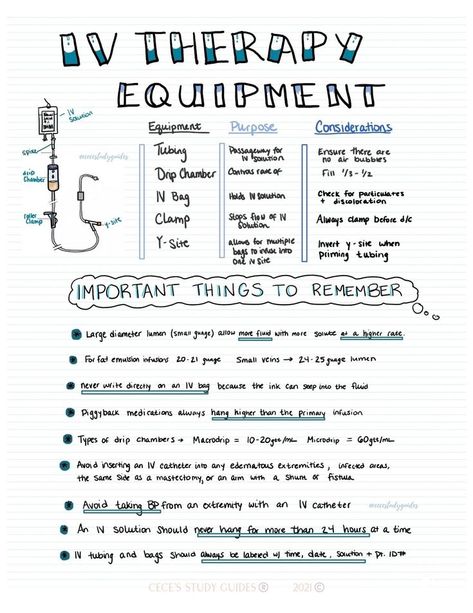 IV THERAPY
EQUIPMENT
IV
Solution
spike
drip
chamber
roller
clamp
y-site
@cecestudyguides
Equipment Purpose Considerations
Tubing Passageway for IV solution Ensure there are no air bubbles
Drip Chamber Controls rate of Fill 1/3 - 1/2
IV Bag Holds IV Solution Check for particulates + discoloration
Clamp Stops flow of IV Solution Always clamp before d/c
Y-Site allows for multiple bags to infuse into one IV site Invert y-site when priming tubing
IMPORTANT THINGS TO REMEMBER
Large diameter lumen (small guage) allow more fluid with more solute at a higher rate.
For fat emulsion infusions 20-21 guage Small veins → 24-25 guage lumen
never write directly on an IV bag because the ink can seep into the fluid
Piggyback medications always hang higher than the primary infusion
Types of drip chambers → Macrodrip = 10-20gtts/mL Microdrip = 60gtts/mL
Avoid inserting an IV catheter into any edematous extremities, infected areas,
the same side as a mastectomy, or an arm with a shunt or fistula
Avoid taking BP from an extremity with an IV catheter
@cecestudyguides
An IV solution should never hang for more than 24 hours at a time
IV tubing and bags should always be labeled w/ time, date, solution + Dr. ID#
CECE'S STUDY GUIDES ® 2021 ©